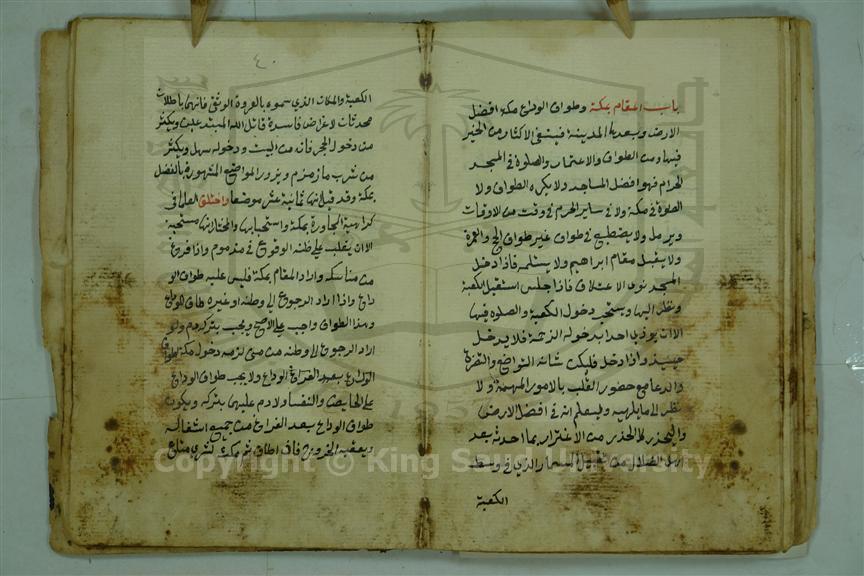 باب المقام بمكة وطواف الوداع مكة افضل
الارض وبعدها المدينة فينبغي الاكثار من الخير
فيها ومن الطواف والاعتمار والصلوة في المسجد
الحرام فهو افضل المساجد ولا يكره الطواف ولا
الصلوة في مكة ولا في ساير الحرم في وقت من الاوقات
ويرمل ولا يضطبع في طواف غير طواف الحج والعمرة
ولا يقبل مقام ابراهيم ولا يستلمه فاذا دخل
المسجد نوى الاعتكاف فاذا جلس استقبل الكعبة
ونظر اليها ويستحب دخول الكعبة والصلوة فيها
الا ان يوذي احدا بدخوله الزحمة فلا يدخل
حينيذ واذا دخل فليكن شانه التواضع
والدعا مع حضور القلب بالامور المهمة ولا
ينظر الى ما يلهيه وليعلم انه في افضل الارض
وليحذر كل الحذر من الاغترار بما احدثه بعد
اهل الضلال من تقبيل المسمار الذي في وسط
الكعبة
٤٠
الكعبة والمكان الذي سموه بالعروة الوثقى فانهما باطلان
محدثان لاغراض فاسدة قاتل الله المبتدعين ويكثر
من دخول الحجر فانه من البيت ودخوله سهل ويكثر
من شرب ماء زمزم ويزور المواضع المشهورة بالفضل
بمكة وقد قيل انها ثمانية عشر موضعا واختلف العلما في
كراهية المجاورة بمكة واستحبابها والمختار انها مستحبة
الا ان يغلب على ظنه الوقوع في مذموم واذا فرغ
من مناسكه واراد المقام بمكة فليس عليه طواف الو
داع واذا اراد الرجوع الى وطنه او غيره طاف للوداع
وهذا الطواف واجب على الاصح ويجب بتركه دم ولو
اراد الرجوع الى وطنه من منى لزمه دخول مكة لطواف
الوداع بعد الفراغ ولا يجب طواف الوداع
على الحايض والنفسا ولا دم عليهما بتركه ويكون
طواف الوداع بعد الفراغ من جميع اشغاله
ويعقبه الخروج فان اطاق ثم مكث لشري متاع
Copyright © King Saud University